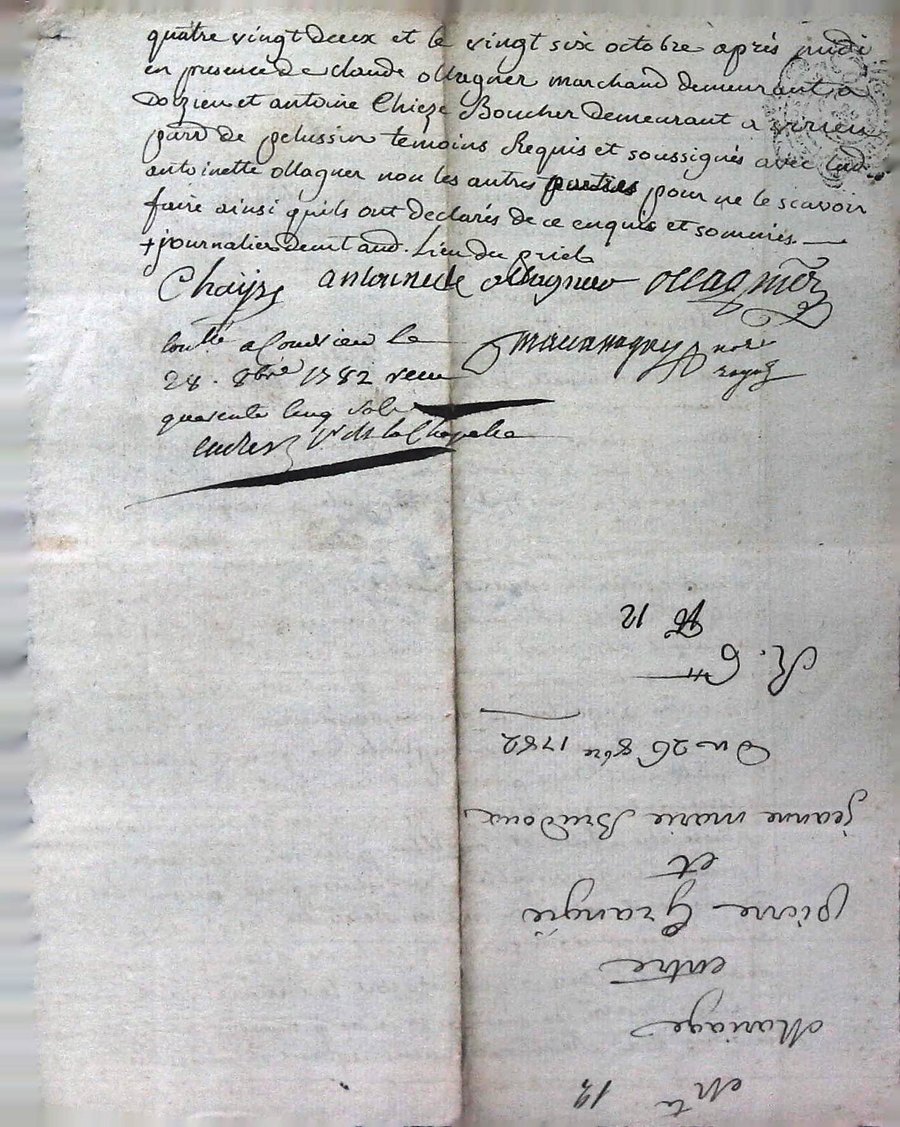 quatre vingt deux et le vingt six octobre après midi
en presence de claude ollagner marchand demeurant a
Doizieu et antoine Chieze Boucher demeurant a virieu
parr de pelussin temoins Requis et soussignés avec lad.
antoinette ollagner non les autres parties pour ne le scavoir
faire ainsi quils ont declarés de ce enquis et sommés
+ journalier demt aud. Lieu du
Chaize antoinette ollagner ollagnier
Contllé a Condrieu le
28. 8bre 1782 receu
quarente cinq sols
nore
royal
No 12
R. C
Du 26 8bre 1782
jeanne marie
et
pierre Grangié
entre
Mariage
12